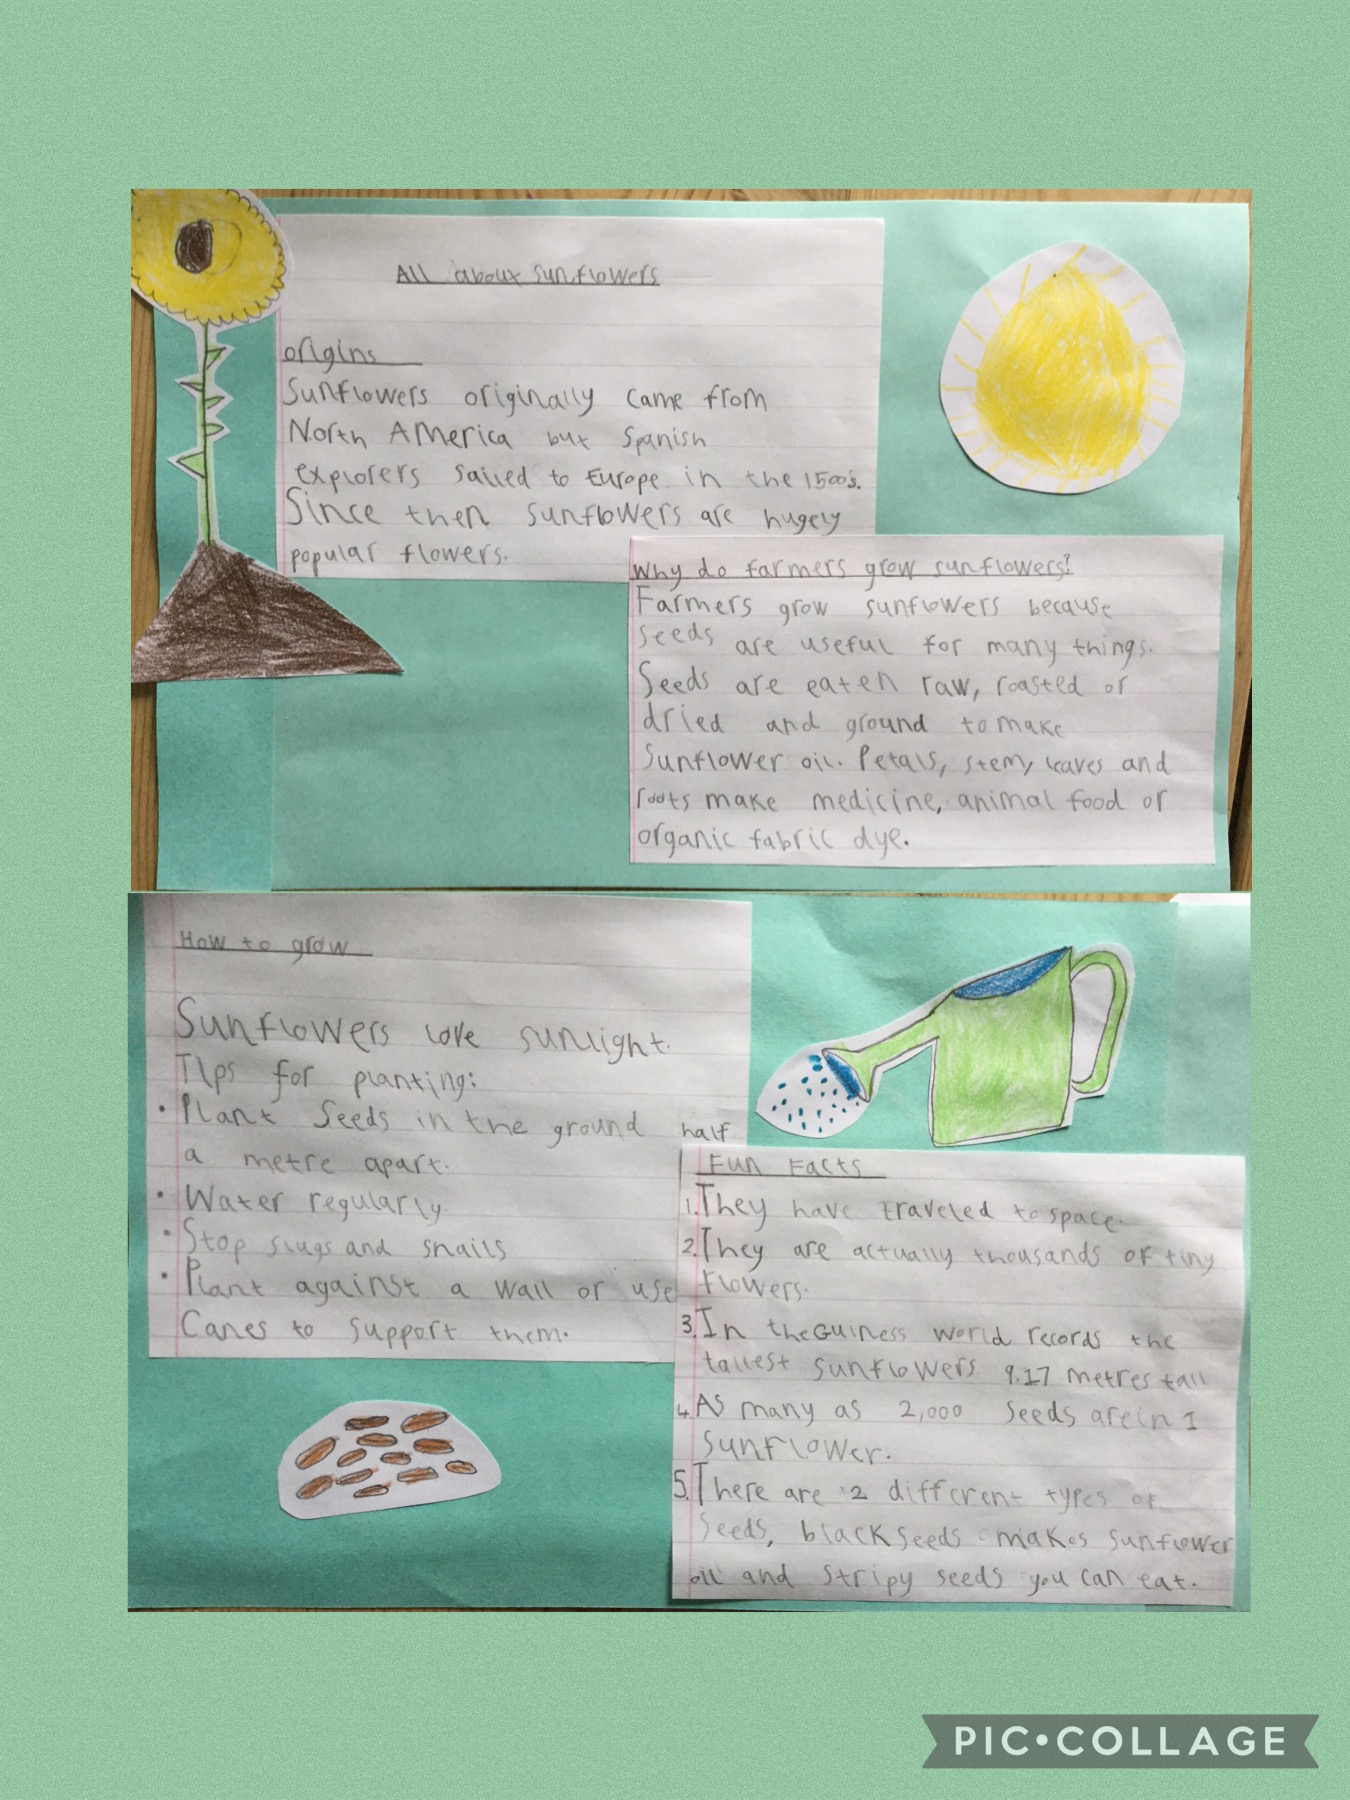 All about sunflowers
origins
Sunflowers originally came from
North America but Spanish
explorers sailed to Europe in the 1500s.
Since then sunflowers are hugely
popular flowers.
Why do farmers grow sunflowers?
Farmers grow sunflowers because
seeds are useful for many things.
Seeds are eaten raw, roasted or
dried and ground to make
sunflower oil. Petals, stem, leaves and
roots make medicine, animal food or
organic fabric dye.
How to grow
Sunflowers love sunlight.
TIps for planting:
• Plant Seeds in the ground half
a metre apart.
• Water regularly
• Stop slugs and snails
• Plant against a wall or use
Canes to support them.
Fun Facts
1. They have traveled to space.
2. They are actually thousands of tiny
flowers.
3. In the Guiness world records the
tallest sunflowers 9.17 metres tall
4 As many as 2,000 seeds are in 1
sunflower.
5. There are 2 different types of
seeds, black seeds makes sunflower
oil and stripy seeds you can eat.
PIC•COLLAGE